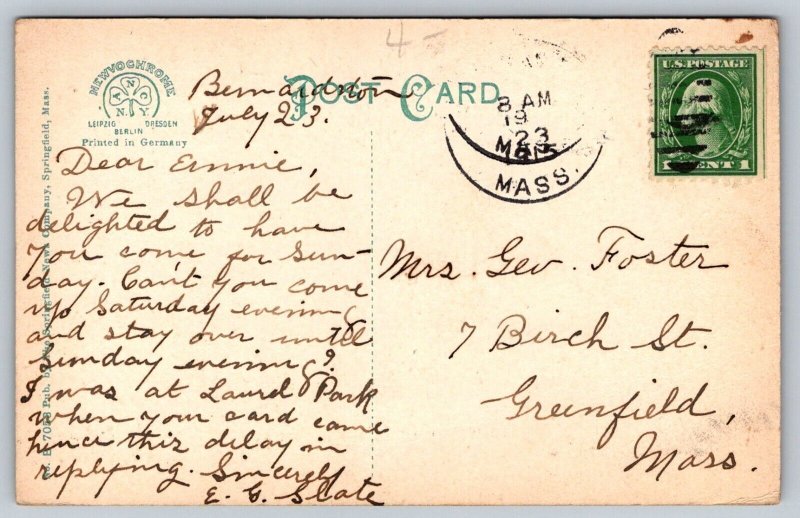 4
NEWVOCHROME
A N C
N.Y.
LEIPZIG DRESDEN
BERLIN
Printed in Germany
POST CARD
Pub. by the Springfield News Company, Springfield, Mass.
Bernardston
July 23.
Dear Ennie,
We shall be
delighted to have
you come for Sun-
day. Can't you come
up Saturday evening
and stay over until
Sunday evening?
I was at Laurel Park
when your card came
hence this delay in
replying. Sincerely
E. C. Slate
8 AM
19
23
MASS.
U.S. POSTAGE
1 CENT 1
Mrs. Geo. Foster
7 Birch St.
Greenfield,
Mass.